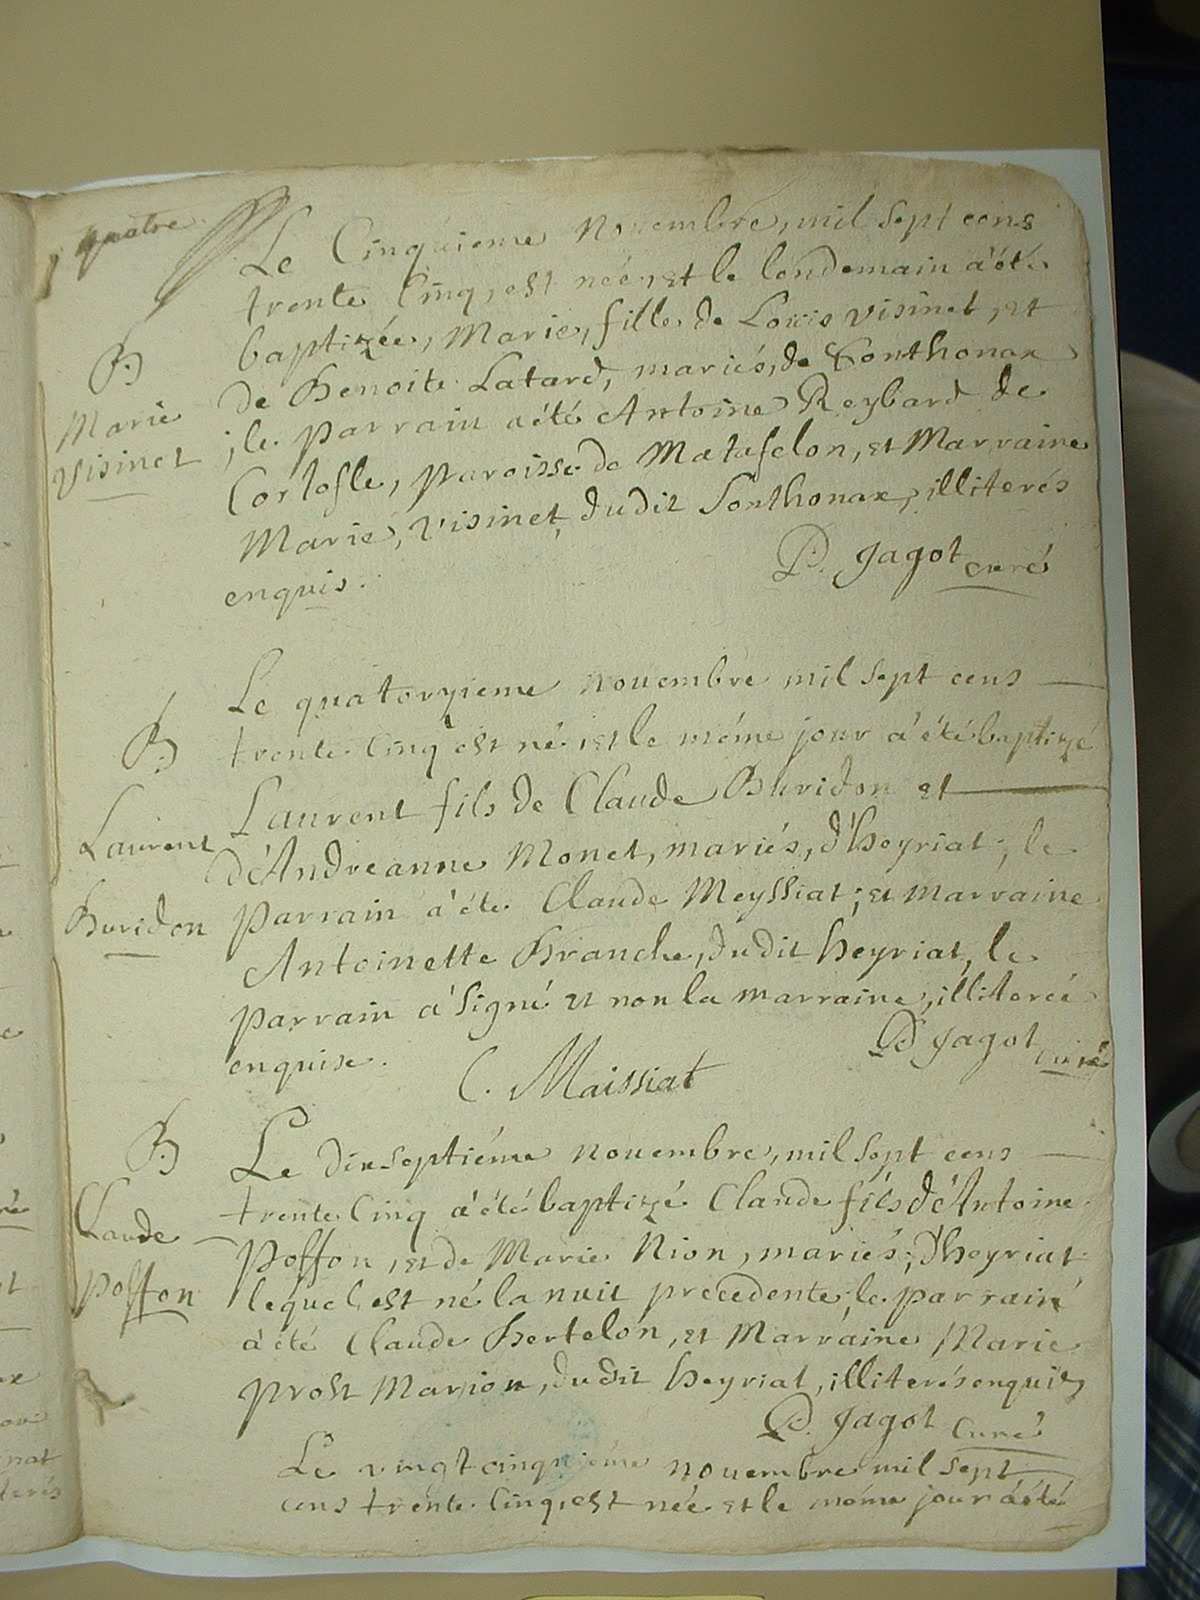 quatre
Le Cinquieme Novembre, mil sept cens
trente Cinq, est née, et le lendemain à été
baptizée, Marie, fille de Louis Visinet, et
de Benoite Latard, mariés, de Sonthonax
B
Marie
Visinet
; le parrain a été Antoine Reybard de
Corlosle, paroisse de Matafelon, et Marraine
Marie, Visinet, dudit Sonthonax, illiterés
enquis.
P. Jagot curé
Le quatorzieme novembre mil sept cens
trente Cinq est né, et le méme jour à été baptizé
B
Laurent
Buridon
Laurent fils de Claude Buridon et
d'Andreanne Monet, mariés, d'heyriat; le
parrain à été Claude Meyssiat; et marraine
Antoinette Branche, dudit heyriat, le
parrain à signé et non la marraine, illiterée
enquise.
P Jagot curé
C. Maissiat
B
Claude
Poffon
Le dixseptiéme novembre, mil sept cens
trente Cinq à été baptizé Claude fils d'Antoine
Poffon, et de Marie Nion, mariés; d'heyriat
lequel est né la nuit précedente, le parrain
à été Claude Bertelon, et Marraine Marie
prost Marion, dudit heyriat, illiterés enquis
P. Jagot Curé
Le vingt cinquiéme novembre mil sept
cens trente Cinq, est née et le méme jour à été